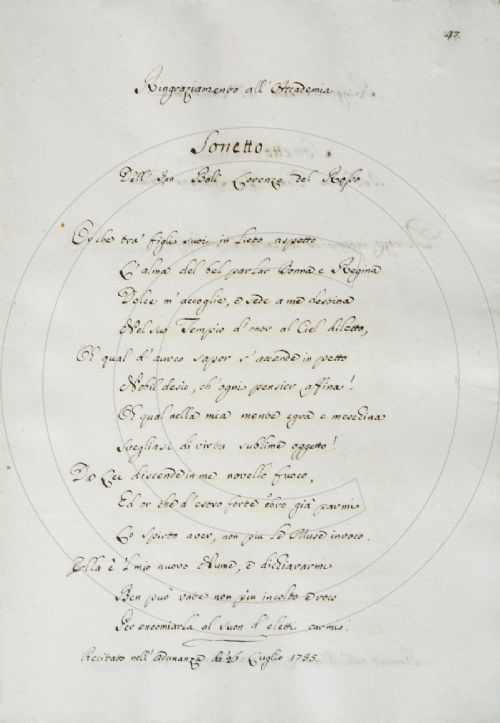 47
Ringraziamento all' Accademia
Sonetto
Dell' Lorenzo del Rosso
Or che tra' figli suoi in lieto aspetto
L' alma del bel parlar Donna e Regina
Dolce m' accoglie, e sede a me destina
Nel suo Tempio d' onor al Ciel diletto,
Oh qual d' aureo sapor s' accende in petto
Nobil desio, ch' ogni pensier affina!
Oh qual nella mia mente egra e meschina
Svegliasi di virtù sublime oggetto!
Da Lei discende in me novello fuoco,
Ed or che d' estro forte ebro già parmi
Lo spirto aver, non più le Muse invoco.
Ella è 'l mio nuovo Nume, e dichiararmi
Ben può vate non più incolto e roco
Per encomiarla al suon d' eletti carmi.
Recitato nell' adunanza de' 26 Luglio 1755.